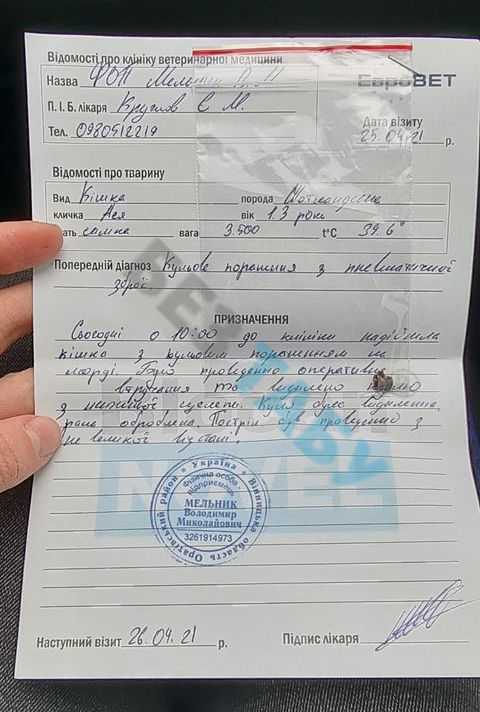 Відомості про клініку ветеринарної медицини
Назва ФОП Мельник В. М
ЄвроВЕТ
П. І. Б. лікаря Круглов Є М.
Дата візиту
Тел. 0980512219
25.04.21 р.
Відомості про тварину
Вид Кішка порода Шотландська
кличка Ася вік 1.3 роки
ать самка вага 3.500 t°C 39.6°
Попередній діагноз Кульове поранення з пневматичної
зброї.
ПРИЗНАЧЕННЯ
Сьогодні о 10:00 до клініки надійшла
кішка з кульовим пораненням на
морді. Було проведенно оперативне
втручання та видалено
з нижньої щелепи. Куля була видалена,
рана оброблена. Постріл був проведений з
не великої відстані!
БЕЗ ТАБУ
Оратівський район * Україна * Вінницька область
Фізична особа
підприємець
МЕЛЬНИК
Володимир
Миколайович
3261914973
Наступний візит 26.04.21 р. Підпис лікаря